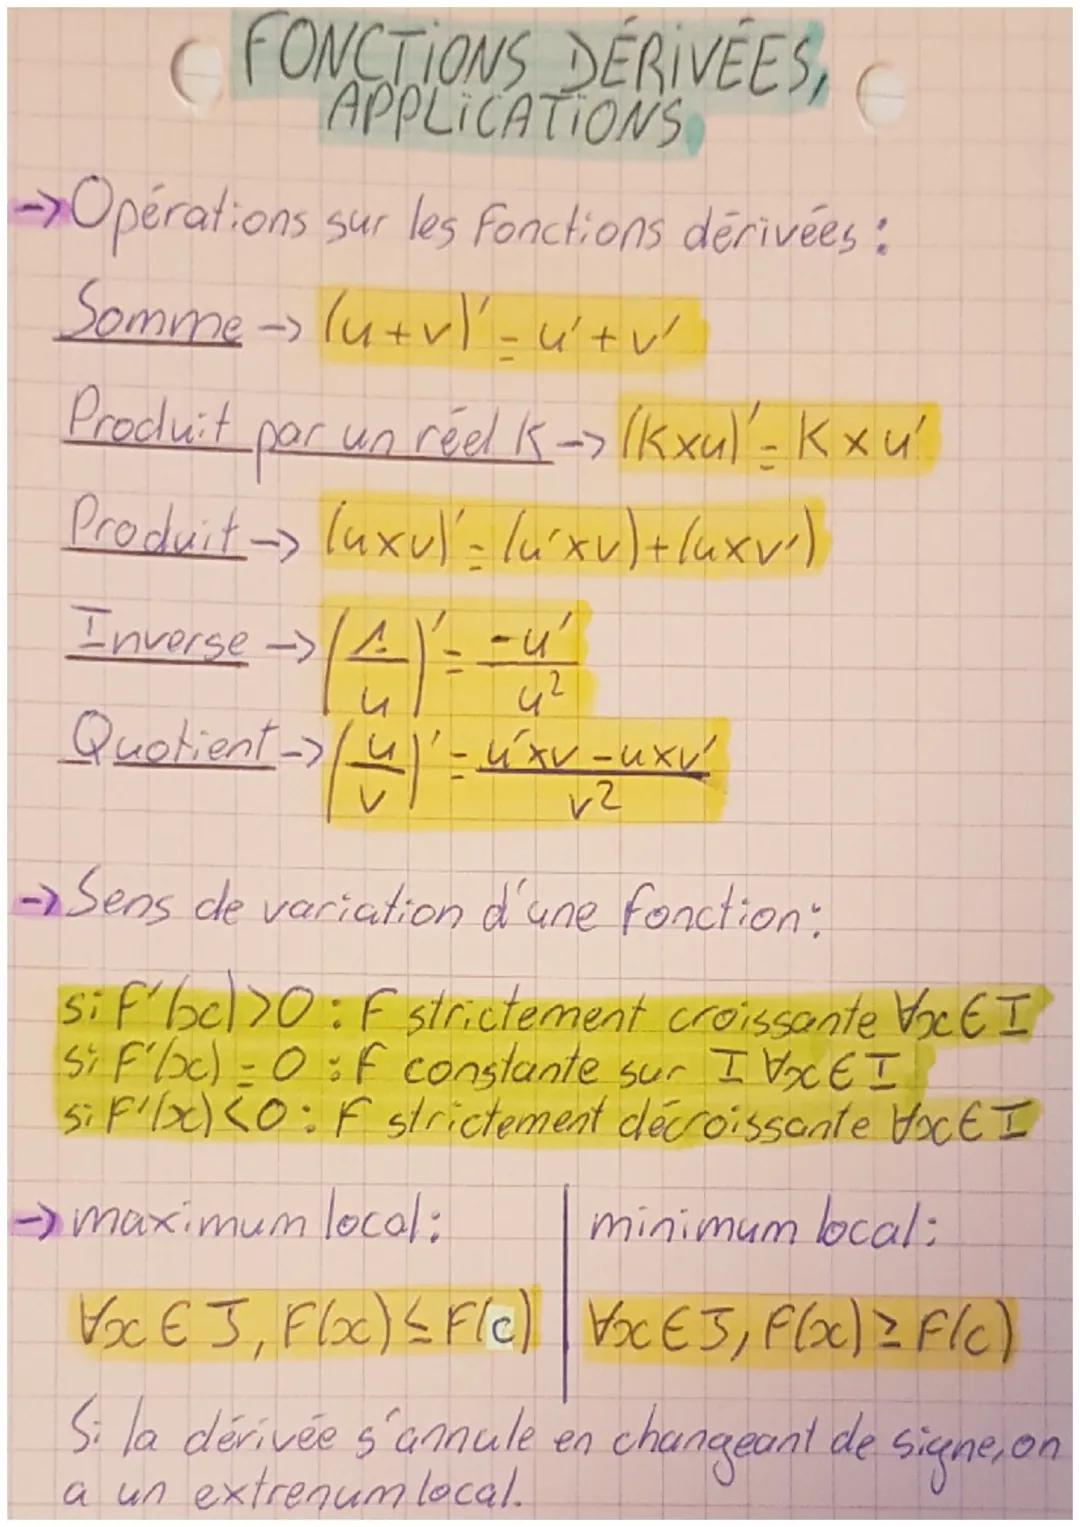 FONCTIONS DÉRIVÉES,
APPLICATIONS.
-> Opérations sur les fonctions dérivées :
Somme -> (u+v)' = u'+v'
Produit par un réel K -> (K×u)' = K×u'
Produit -> (u×v)' = (u'×v)+(u×v')
Inverse -> (1/u)' = -u'/u²
Quotient -> (u/v)' = u'×v-u×v'/v²
-> Sens de variation d'une fonction:
si F'(x)>0 : F strictement croissante ∀x∈I
si F'(x)=0 : F constante sur I ∀x∈I
si F'(x)<0 : F strictement décroissante ∀x∈I
-> maximum local:
∀x∈J, F(x)≤F(c)
minimum local:
∀x∈J, F(x)≥F(c)
Si la dérivée s'annule en changeant de signe, on
a un extrenum local.